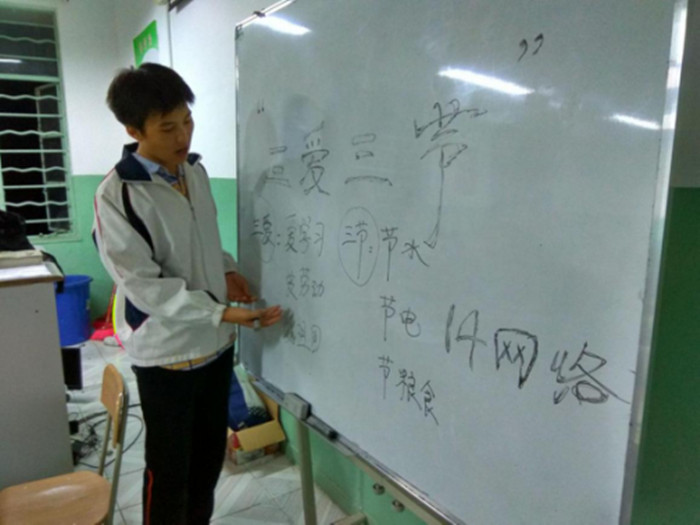 “三爱三节”
三爱:爱学习
爱劳动
爱祖国
三节:节水
节电
节粮食
14网络